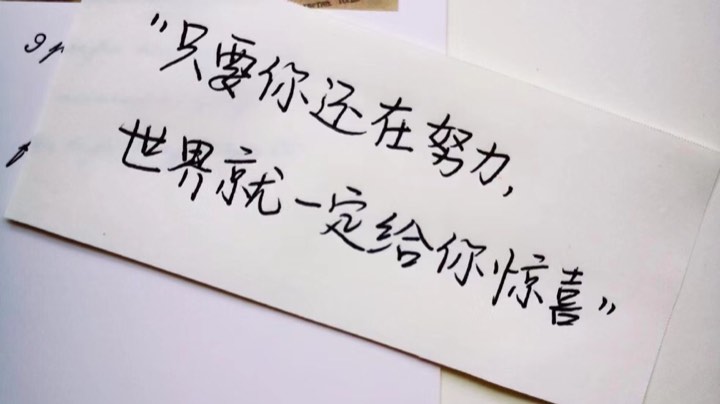 “只要你还在努力,
世界就一定给你惊喜”